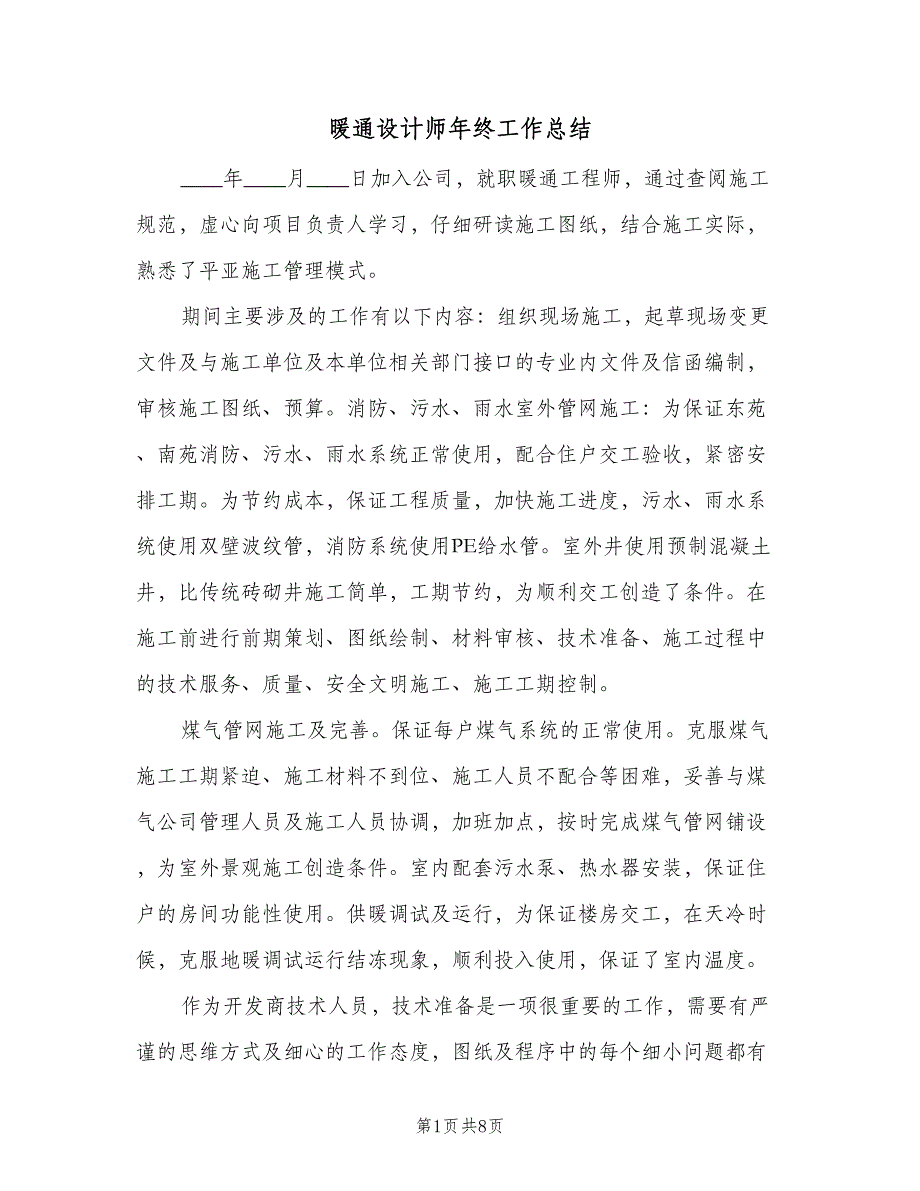 暖通设计师年终工作总结
____年____月____日加入公司，就职暖通工程师，通过查阅施工
规范，虚心向项目负责人学习，仔细研读施工图纸，结合施工实际，
熟悉了平亚施工管理模式。
期间主要涉及的工作有以下内容：组织现场施工，起草现场变更
文件及与施工单位及本单位相关部门接口的专业内文件及信函编制，
审核施工图纸、预算。消防、污水、雨水室外管网施工：为保证东苑
、南苑消防、污水、雨水系统正常使用，配合住户交工验收，紧密安
排工期。为节约成本，保证工程质量，加快施工进度，污水、雨水系
统使用双壁波纹管，消防系统使用PE给水管。室外井使用预制混凝土
井，比传统砖砌井施工简单，工期节约，为顺利交工创造了条件。在
施工前进行前期策划、图纸绘制、材料审核、技术准备、施工过程中
的技术服务、质量、安全文明施工、施工工期控制。
煤气管网施工及完善。保证每户煤气系统的正常使用。克服煤气
施工工期紧迫、施工材料不到位、施工人员不配合等困难，妥善与煤
气公司管理人员及施工人员协调，加班加点，按时完成煤气管网铺设
，为室外景观施工创造条件。室内配套污水泵、热水器安装，保证住
户的房间功能性使用。供暖调试及运行，为保证楼房交工，在天冷时
候，克服地暖调试运行结冻现象，顺利投入使用，保证了室内温度。
作为开发商技术人员，技术准备是一项很重要的工作，需要有严
谨的思维方式及细心的工作态度，图纸及程序中的每个细小问题都有
第1页 共8页